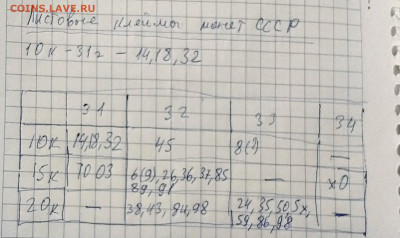 COINS.LAVE.RU
Листовые клеймы монет СССР
10к - 31г - 14,18,32
31 32 33 34
10к 14,18,32 45 8(?) —
15к 70 03 6(9),26,36,37,85 — х0
89,91
20к — 38,43,94,98 24,35,50,5х, —
59,86,98